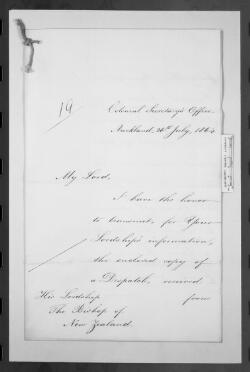 19
Colonial Secretary's Office
Auckland, 26th July, 1864
My Lord,
I have the honor
to transmit, for Your
Lordship's information,
the enclosed copy of
a Despatch, received
from
His Lordship
The Bishop of
New Zealand.